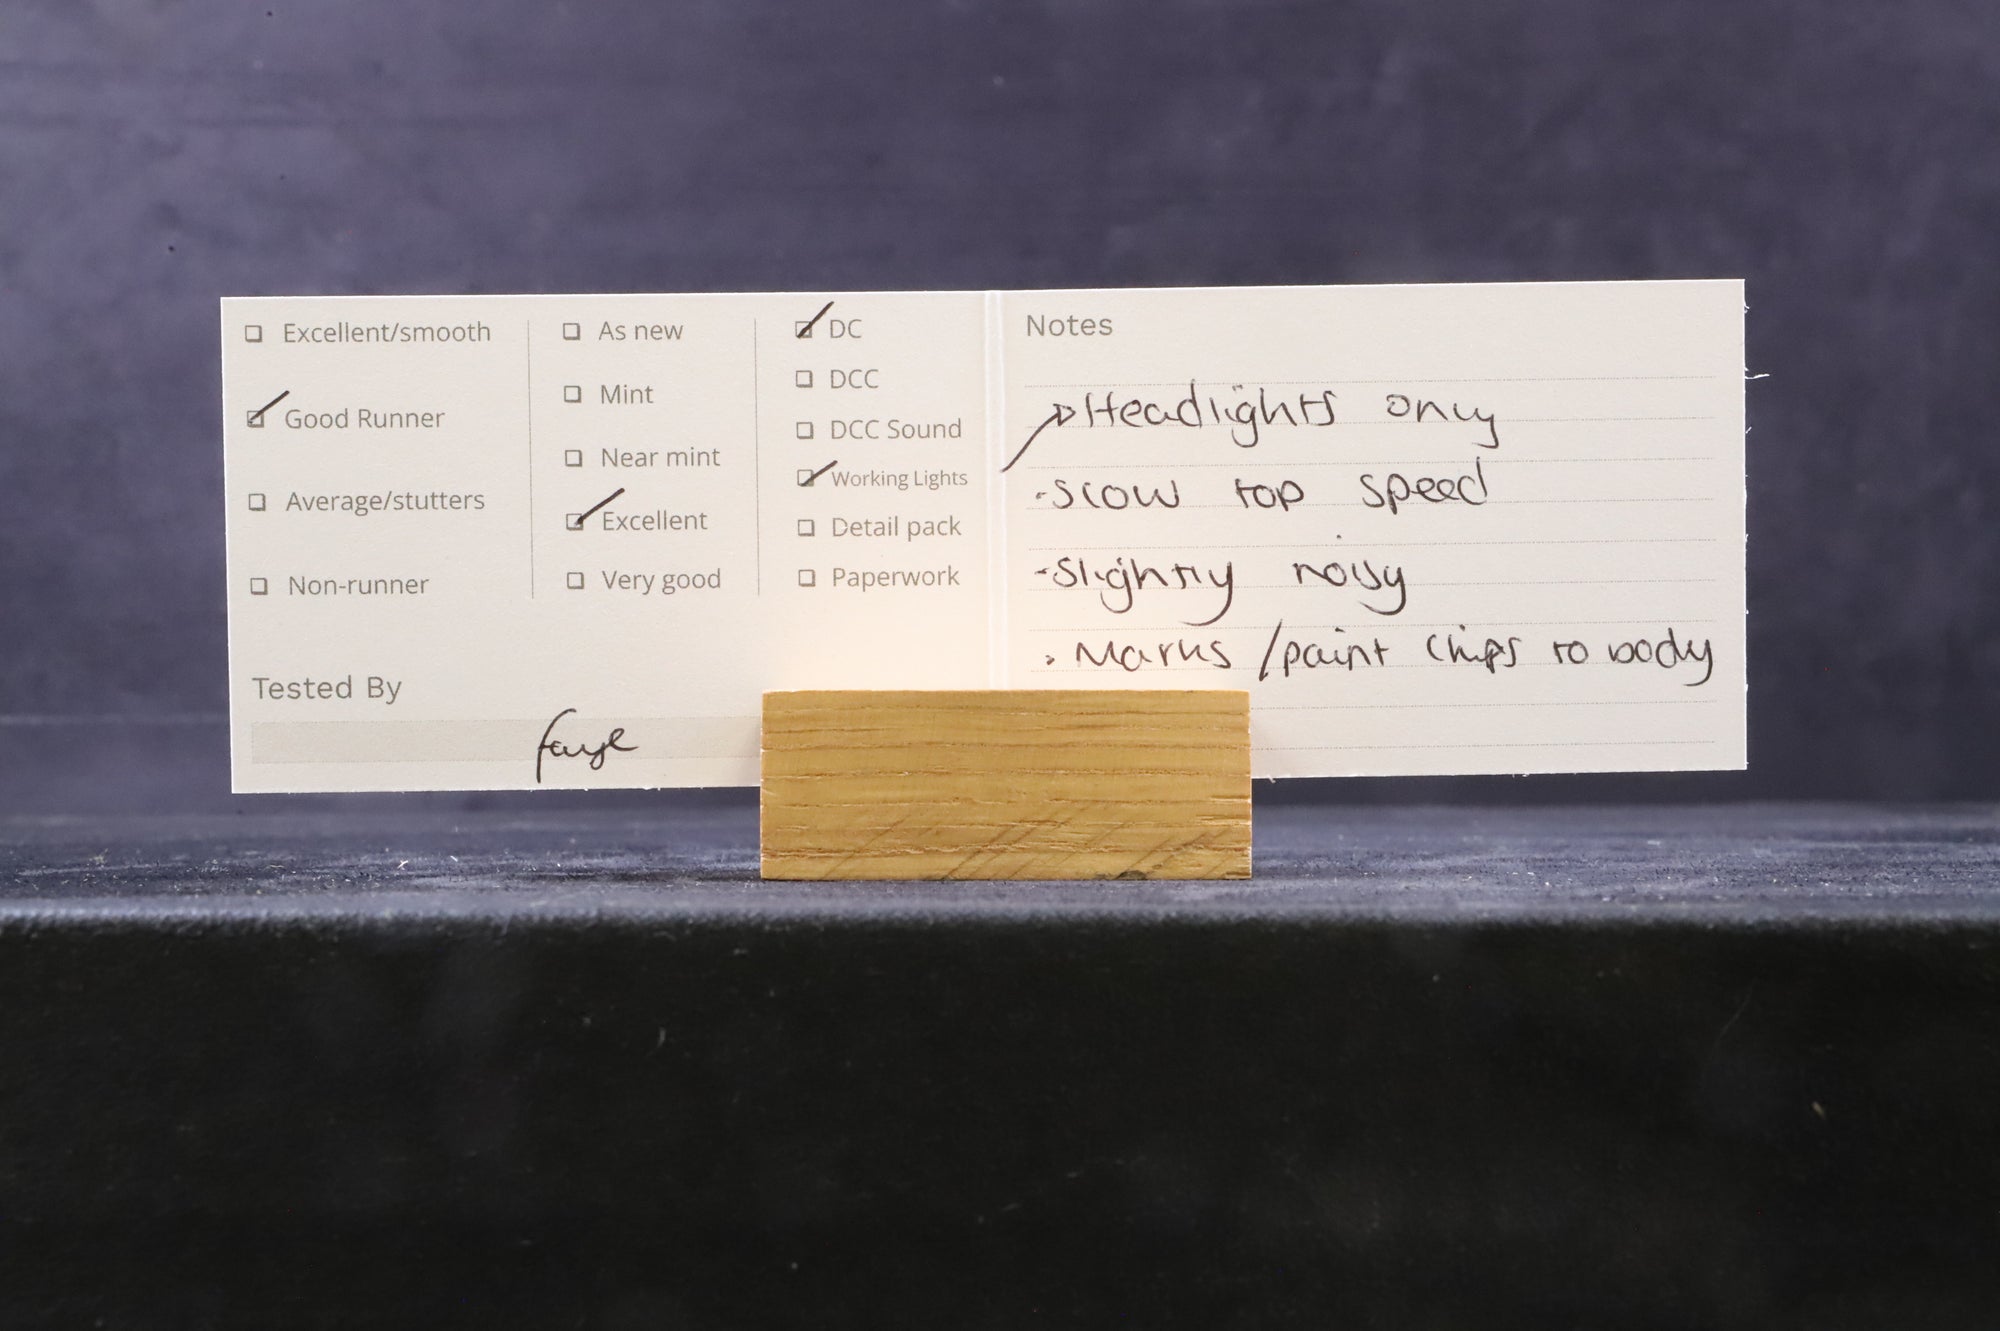 Excellent/smooth
Good Runner
Average/stutters
Non-runner
As new
Mint
Near mint
Excellent
Very good
DC
DCC
DCC Sound
Working Lights
Detail pack
Paperwork
Tested By
faye
Notes
Headlights only
-slow top speed
-slightly noisy
. Marks /paint chips to body